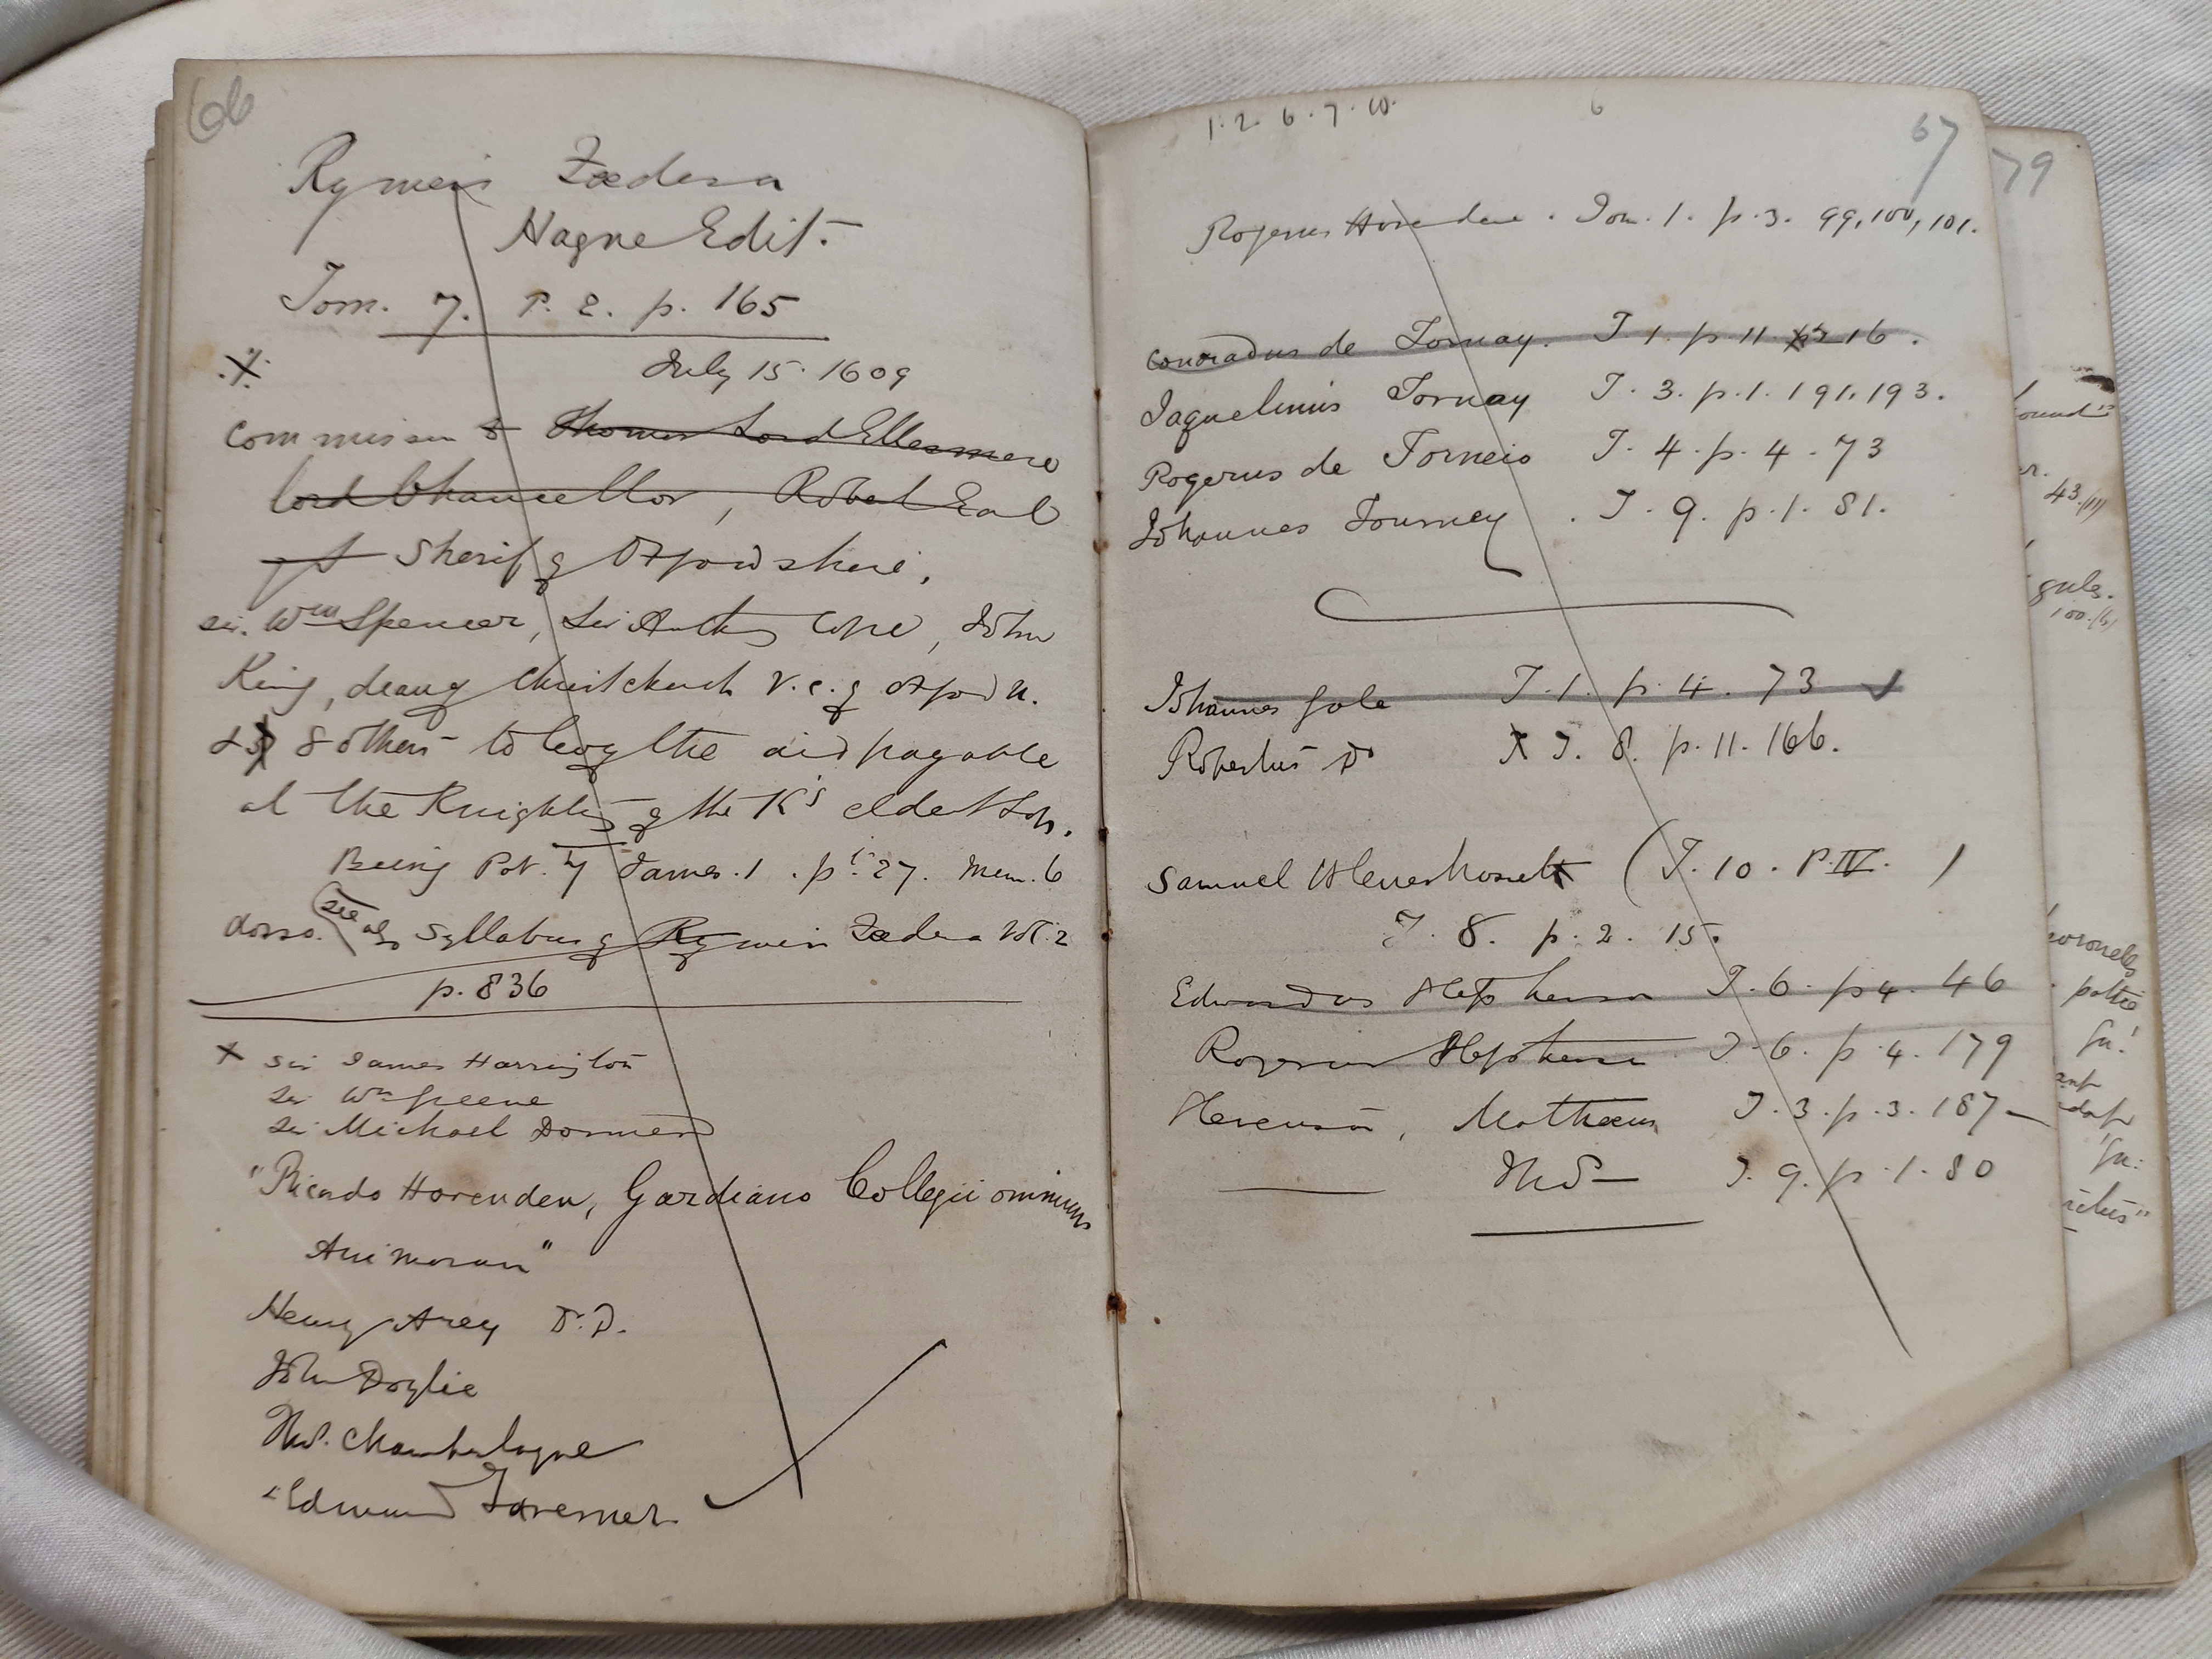 66
Rymers Fœdera
Hague Edit.
Tom. 7. P. 2. p. 165
July 15. 1609
Commission to Thomas Lord Ellesmere
lord Chancellor, Robert Earl
of Sherif of Oxfordshire,
Sir. Wm Spencer, Sir Anth Cope, John
King, dean of Christchurch V.C. of Oxford U.
& 8 others to levy the aid payable
at the Knighting of the K's eldest son.
Being Pat. 7 James. 1. pt. 27. Mem. 6
dorso. (see also Syllabus of Rymers Fœdera Vol. 2
p. 836
x Sir James Harrington
Sir Wm Greene
Sir Michael Dormer
"Ricardo Hovenden, Gardiano Collegii omnium
Animarum"
Henry Arey D.D.
John Doylie
Thos. Chamberlayne
"Edmund Taverner
1. 2. 6. 7. 10. 6
67
Rogerus Hovenden. Tom. 1. p. 3. 99, 100, 101.
Conradus de Tornay. T 1. p 11. 16.
Jaquelinus Tornay T. 3. p. 1. 191. 193.
Rogerus de Torneio T. 4. p. 4. 73
Johannes Tourney. T. 9. p. 1. 81.
Johannes Gole T. 1. p. 4. 73
Robertus Do T. 8. p. 11. 166.
Samuel (T. 10. P. IV. )
T. 8. p. 2. 15.
Edwardus T. 6. p 4. 46
Rogerus T. 6. p. 4. 179
Matheus T. 3. p. 3. 187
Thos T. 9. p. 1. 80
79
43.
gules.
100.